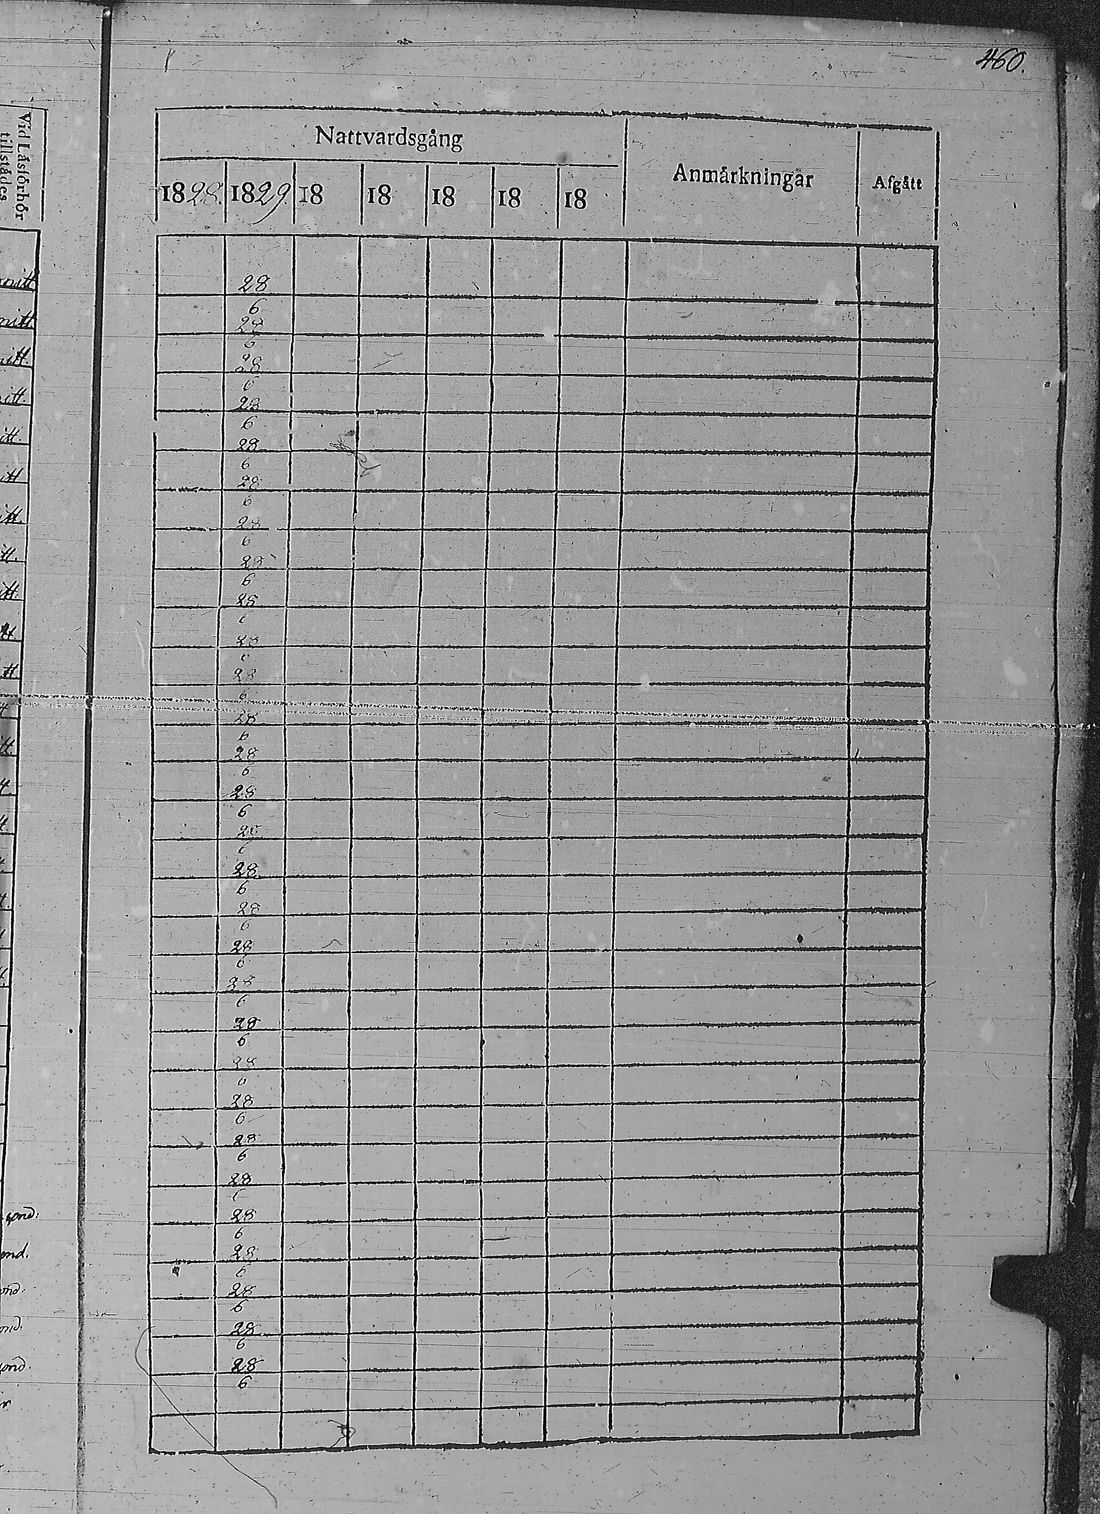 460.
Vid Låsförhör
tillstådes
Nattvardsgång
Anmårkningar
Afgått
1828. 1829. 18 18 18 18 18
28
6
28
6
28
6
28
6
28
6
28
6
28
6
28
6
28
6
28
6
28
6
28
6
28
6
28
6
28
6
28
6
28
6
28
6
28
6
28
6
28
6
28
6
28
6
28
6
28
6
28
6
28
6
28
6
28
6